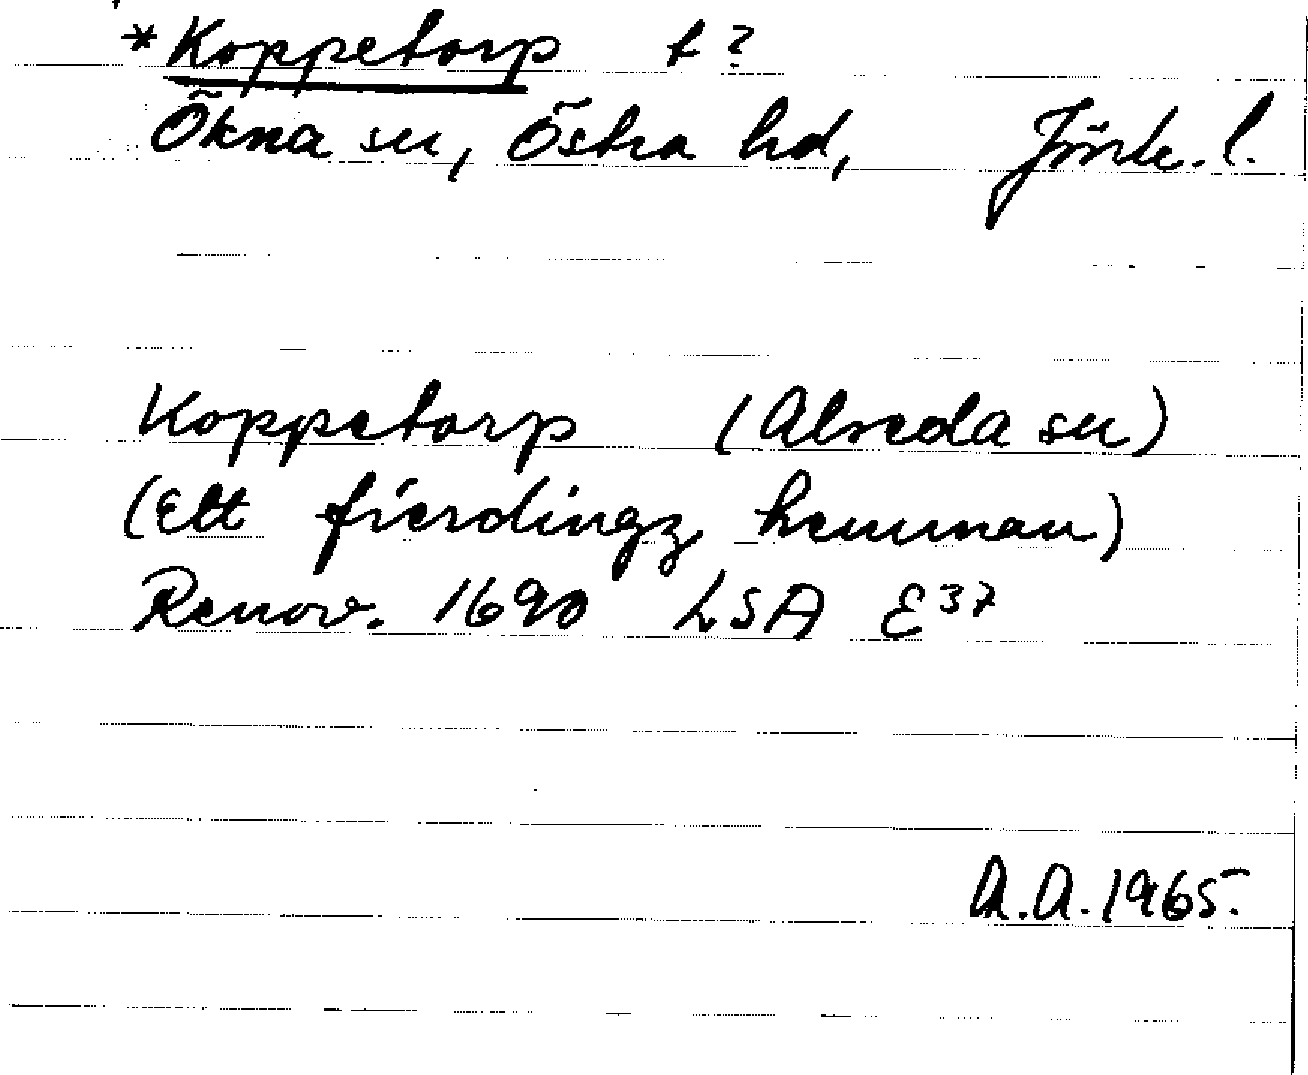 *Koppetorp t?
Ökna sn, Östra hd, Jönk. l.
Koppetorp (Alseda sn)
(Ett fierdingz hemman)
Renov. 1690 LSA E37
A.A. 1965.